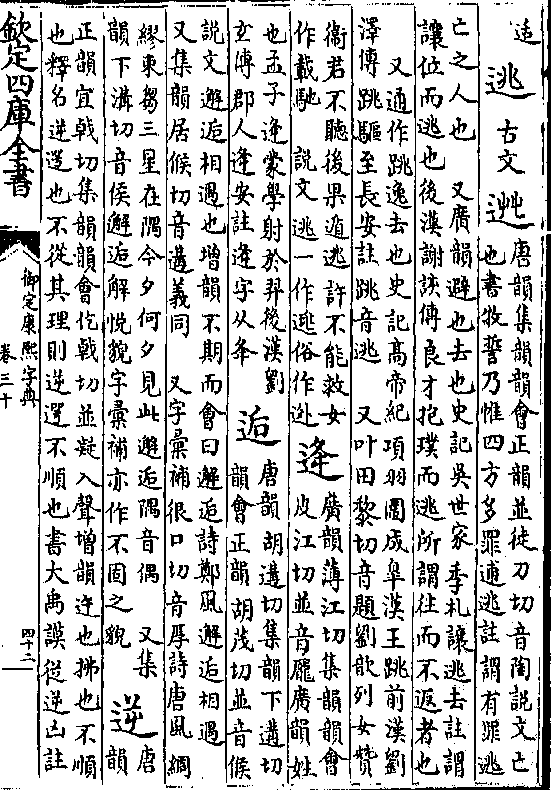 适　逃　古文　𨓱　唐韻集韻韻會正韻並徒刀切音陶說文亡
也書牧誓乃惟四方多罪逋逃註謂有罪逃
亡之人也　又廣韻避也去也史記吳世家季札讓逃去註謂
讓位而逃也後漢謝該傳良才抱璞而逃所謂往而不返者也
又通作跳逸去也史記高帝紀項羽圍成皋漢王跳前漢劉
澤傳跳驅至長安註跳音逃　又叶田黎切音題劉歆列女贊
衞君不聽後果遁逃許不能救女
作載馳　說文逃一作逊俗作迯　逄　廣韻薄江切集韻韻會
皮江切並音龐廣韻姓
也孟子逄蒙學射於羿後漢劉
玄傳郡人逄安註逄字从夅　逅　唐韻胡遘切集韻下遘切
韻會正韻胡茂切並音候
說文邂逅相遇也增韻不期而會曰邂逅詩鄭風邂逅相遇
又集韻居候切音遘義同　又字彙補很口切音厚詩唐風綢
繆束芻三星在隅今夕何夕見此邂逅隅音偶　又集
韻下溝切音侯邂逅解悅貌字彙補亦作不固之貌　逆　唐
韻
正韻宜戟切集韻韻會仡戟切並凝入聲增韻迕也拂也不順
也釋名逆遻也不從其理則逆遻不順也書大禹謨從逆凶註
欽定四庫全書
御定康熙字典
卷三十
四十二